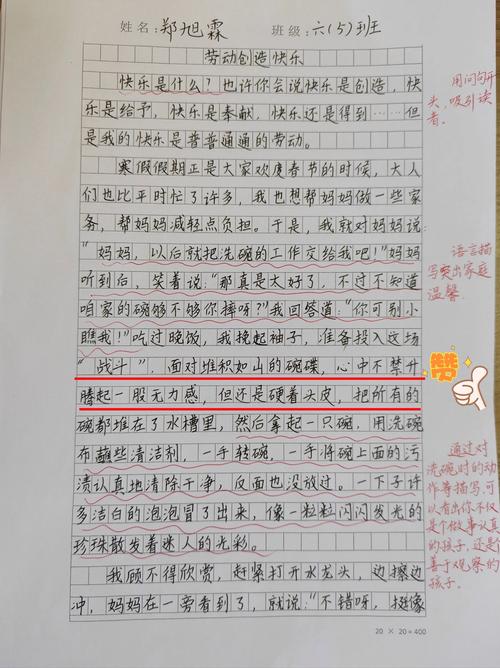 姓名:郑旭霖 班级:六(5)班
劳动创造快乐
快乐是什么?也许你会说快乐是创造,快
乐是给予,快乐是奉献,快乐还是得到……但
是我的快乐是普普通通的劳动。
寒假假期正是大家欢度春节的时候,大人
们也比平时忙了许多,我也想帮妈妈做一些家
务,帮妈妈减轻点负担。于是,我就对妈妈说:
“妈妈,以后就把洗碗的工作交给我吧!”妈妈
听到后,笑着说:“那真是太好了,不过不知道
咱家的碗够不够你摔呀?”我回答道:“你可别小
瞧我!”吃过晚饭,我挽起袖子,准备投入这场
“战斗”,面对堆积如山的碗碟,心中不禁升
腾起一股无力感,但还是硬着头皮,把所有的
碗都堆在了水槽里,然后拿起一只碗,用洗碗
布蘸些清洁剂,一手转碗,一手将碗上面的污
渍认真地清除干净,反面也没放过。一下子许
多洁白的泡泡冒了出来,像一粒粒闪闪发光的
珍珠散发着迷人的光彩。
我顾不得欣赏,赶紧打开水龙头,边擦边
冲,妈妈在一旁看到了,就说:“不错呀,挺像
20 × 20 = 400
用问句开
头,吸引读
者。
语言描
写突出家庭
温馨。
赞
通过对
洗碗时的动
作等描写,可
以看出你不仅
是个做事认真
的孩子,还是个
善于观察的
孩子。